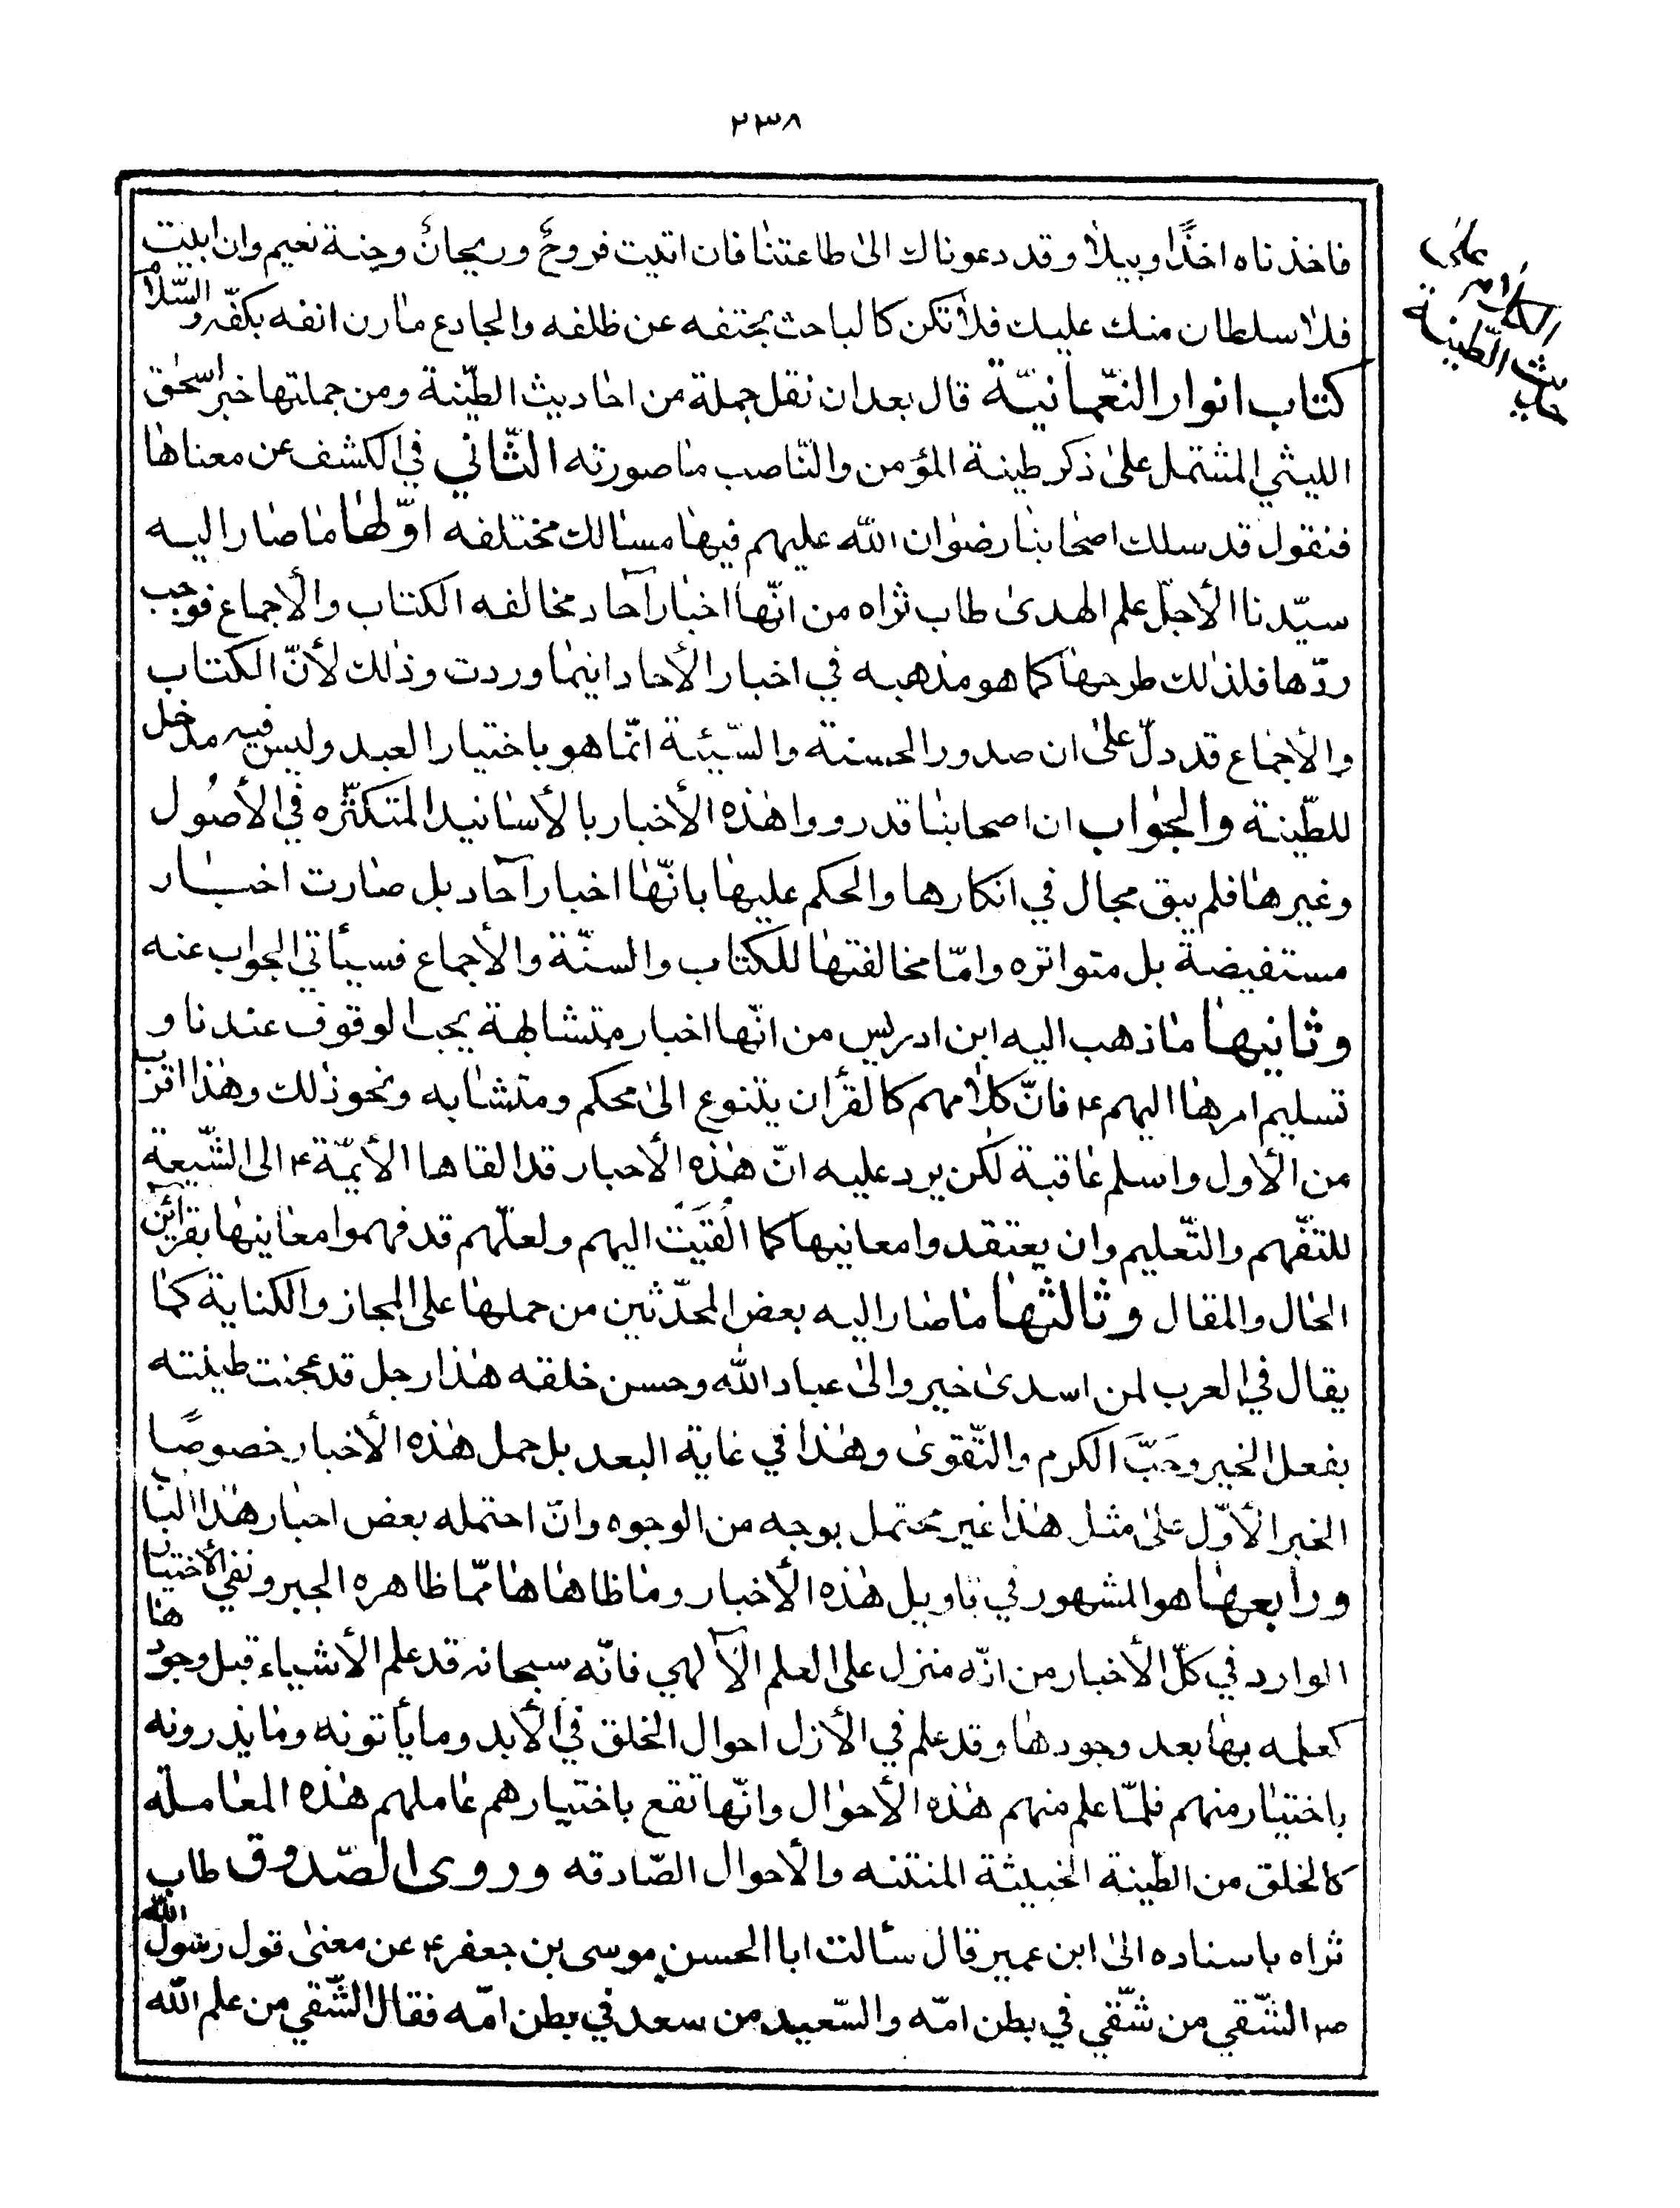 ٢٣٨
فاخذناه اخذًا وبيلا وقد دعوناك الى طاعتنا فان اتيت فروحٌ وريحانٌ وجنة نعيم وان ابيت
فلا سلطان منك عليك فلا تكن كالباحث بحتفه عن ظلفه والجادع مارن انفه بكفّه والسّلام
كتاب انوار النّعمانيّة قال بعد ان نقل جملة من احاديث الطّينة ومن جملتها خبر اسحٰق
الليثي المشتمل على ذكر طينة المؤمن والنّاصب ما صورته الثّاني في الكشف عن معناها
فنقول قد سلك اصحابنا رضوان الله عليهم فيها مسالك مختلفه اوّلها ما صار اليه
سيّدنا الأجلّ علم الهدى طاب ثراه من انّها اخبار آحاد مخالفه الكتاب والأجماع فوجب
ردّها فلذلك طرحها كما هو مذهبه في اخبار الأحاد اينما وردت وذلك لأنّ الكتاب
والأجماع قد دلّ على ان صدور الحسنة والسّيئة انّما هو باختيار العبد وليس فيه مدخل
للطّينة والجواب ان اصحابنا قد رووا هذه الأخبار بالأسانيد المتكثّره في الأصُول
وغيرها فلم يبق مجال في انكارها والحكم عليها بانّها اخبار آحاد بل صارت اخبار
مستفيضة بل متواتره وامّا مخالفتها للكتاب والسنّة والأجماع فسيأتي الجواب عنه
وثانيها ما ذهب اليه ابن ادريس من انّها اخبار متشابهة يجب الوقوف عندنا و
تسليم امرها اليهم ع فانّ كلامهم كالقرأن يتنوع الى محكم ومتشابه ونحو ذلك وهذا اقرب
من الأول واسلم عاقبة لكن يرد عليه انّ هذه الأخبار قد القاها الأئمّة ع الى الشّيعة
للتفّهم والتّعليم وان يعتقدوا معانيها كما اُلقيَتْ اليهم ولعلّهم قد فهموا معانيها بقرائن
الحال والمقال وثالثها ما صار اليه بعض المحدّثين من حملها على المجاز والكناية كما
يقال في العرب لمن اسدى خير والى عباد الله وحسن خلقه هذا رجل قد عجنت طينته
بفعل الخير وحَبّ الكرم والتّقوى وهذا في غاية البعد بل حمل هذه الأخبار خصوصًا
الخبر الأوّل على مثل هذا غير محتمل بوجه من الوجوه وانّ احتمله بعض اخبار هذا الباب
ورابعها هو المشهور في تاويل هذه الأخبار وما ظاهاها ممّا ظاهره الجبر ونفي الأختيار
الوارد في كلّ الأخبار من انّه منزل على العلم الآلهي فانّه سبحانه قد علم الأشياء قبل وجودها
كعلمه بها بعد وجودها وقد علم في الأزل احوال الخلق في الأبد وما يأتونه وما يذرونه
باختيار منهم فلمّا علم منهم هذه الأحوال وانّها تقع باختيارهم عاملهم هذه المعاملة
كالخلق من الطّينة الخبيثة المنتنه والأحوال الصّادقه وروى الصّدوق طاب
ثراه باسناده الى ابن عمير قال سألت ابا الحسن موسى بن جعفر ع عن معنى قول رسول الله
ص الشّقي من شّقي في بطن امّه والسّعيد من سعد في بطن امّه فقال الشّقي من علم الله
الكلام على
حديث الطّينة